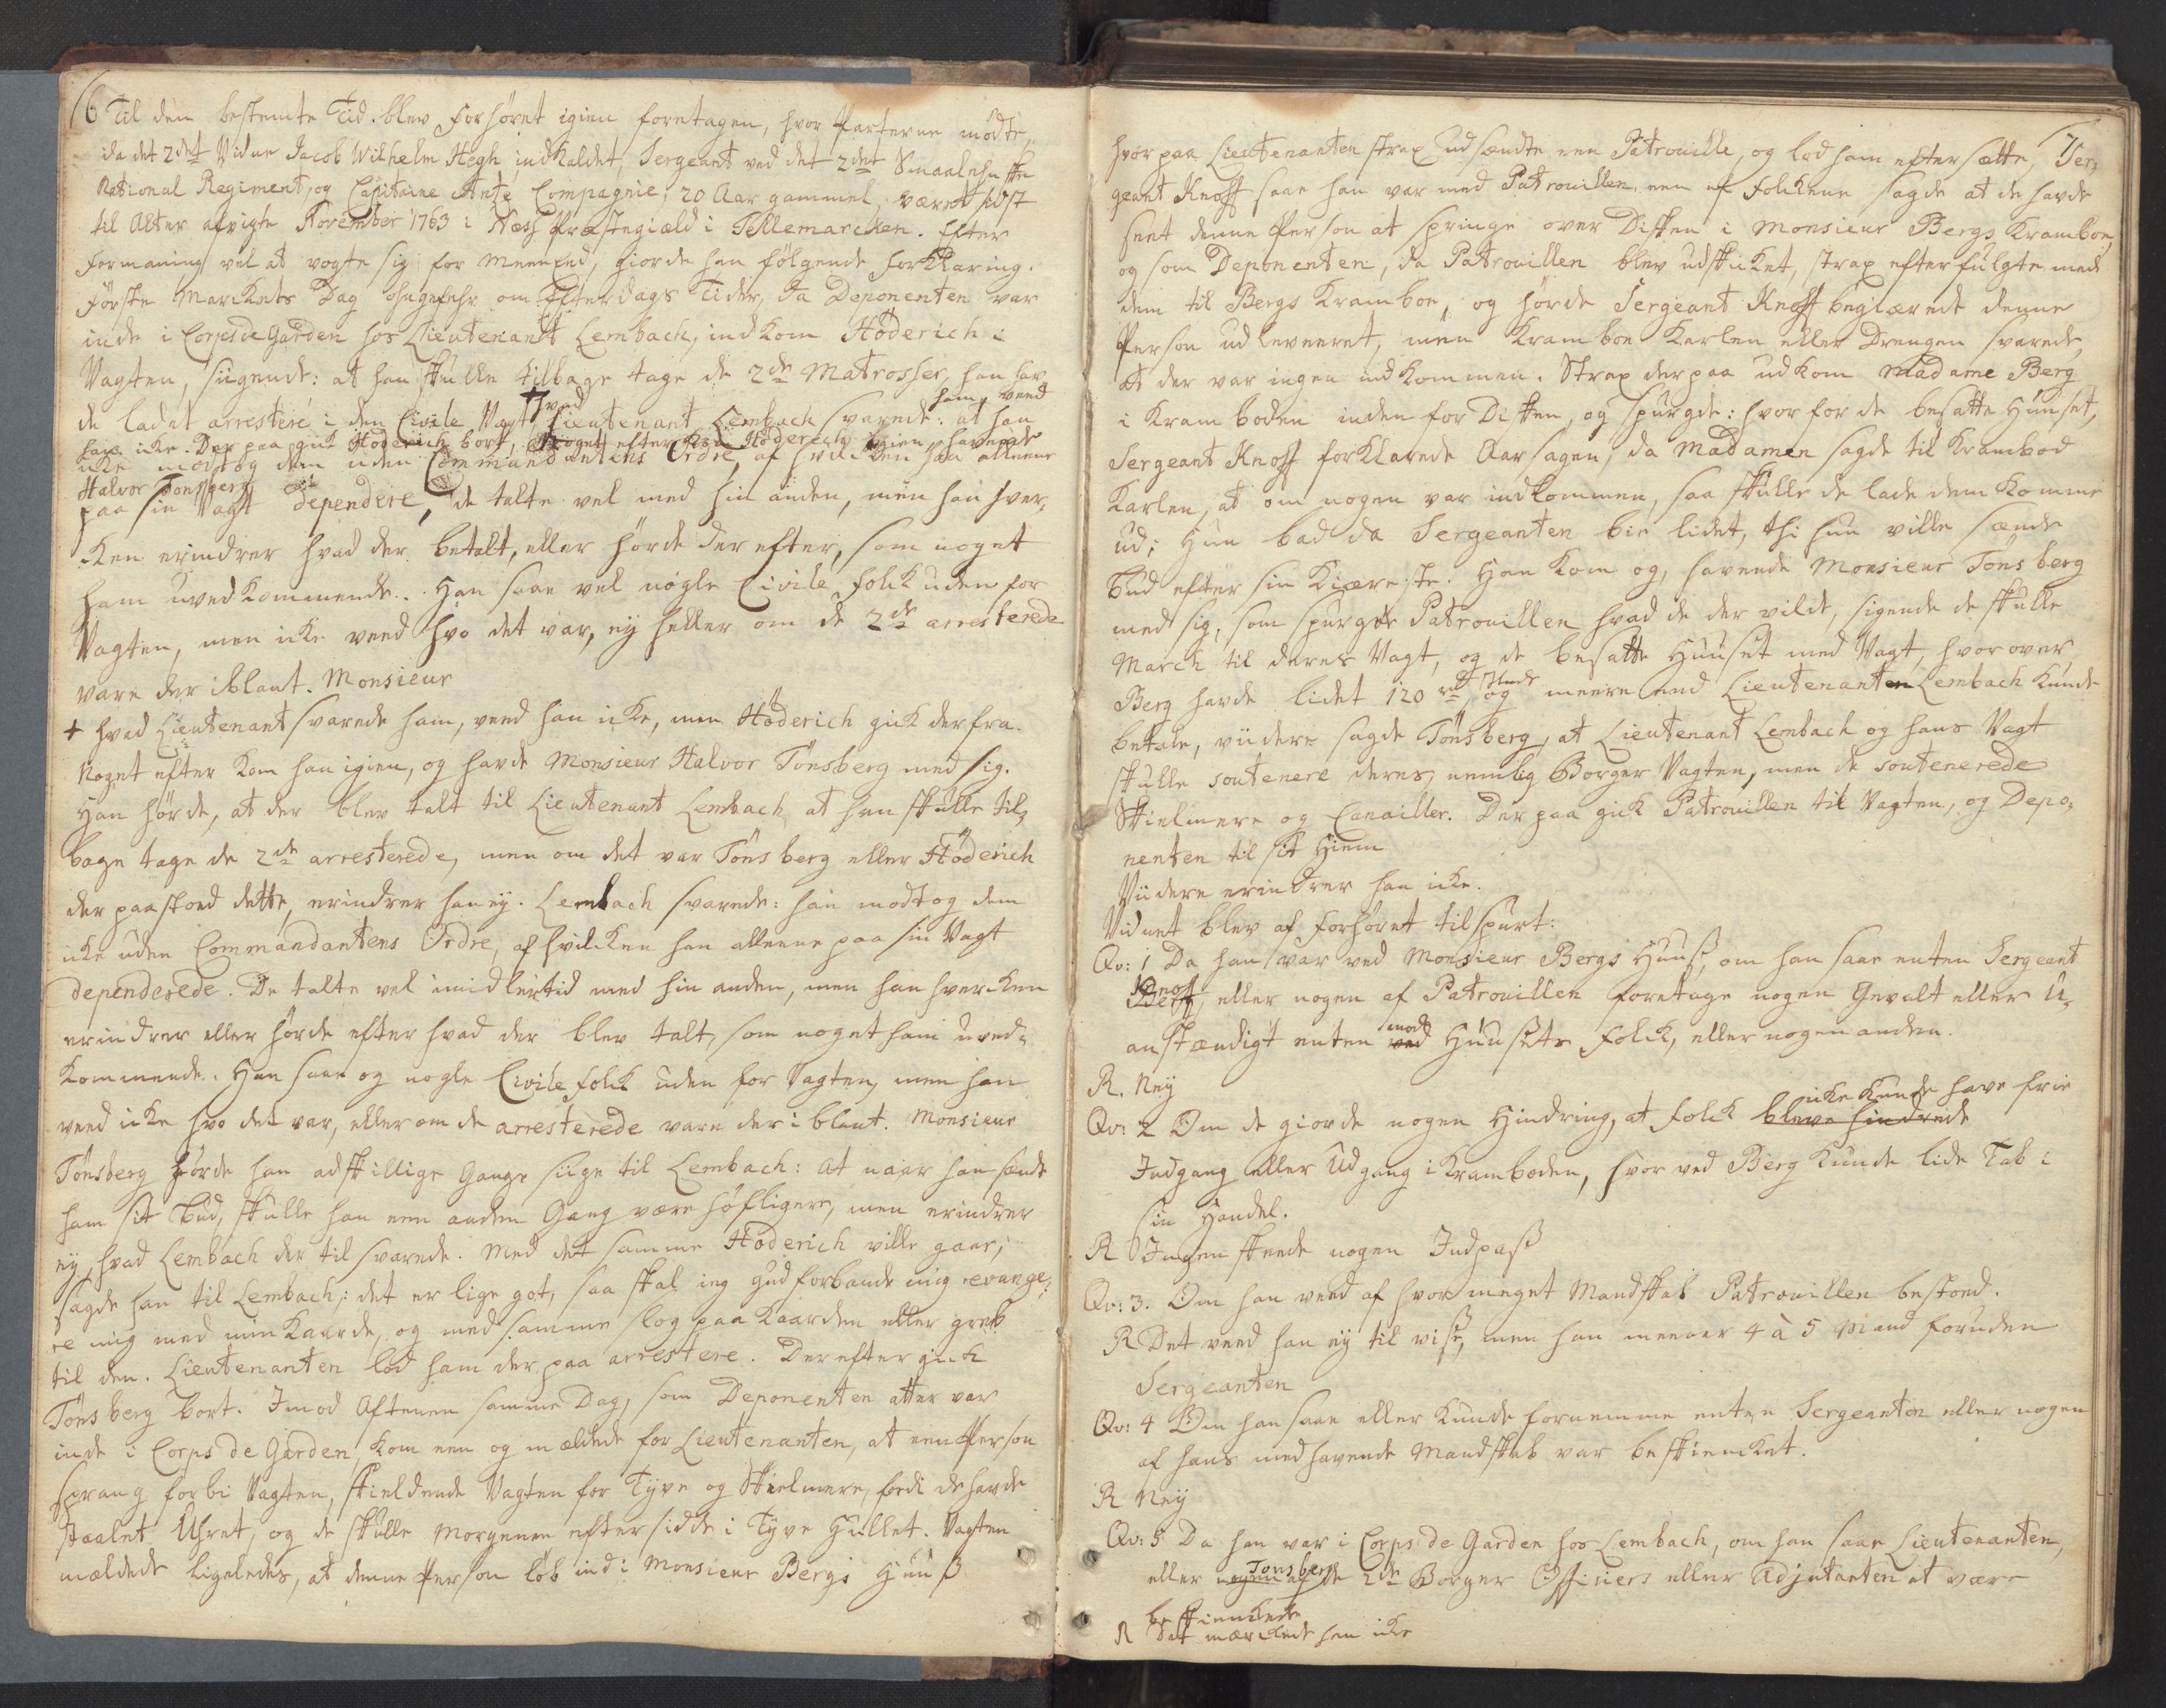 6 Til dem bestemte Tid blev forhöret igien foretagen, hvor Parterne mödte,
da det 2det Vidne Jacob Wilhelm Hegh indkaldet, Sergeant ved det 2det Smaalehnske
National Regiment, og Capitaine Compagnie, 20 Aar gammel, været sidst
til Alter afvigte November 1763 i Næss Præstegiæld i Tellemarcken. Efter
formaning vel at vogte sig for Meeneed, giorde han fölgende forklaring.
Förste Marckets Dag ohngefehr om Efterdags Tider, da Deponenten var
inde i Corps de Garden hos Lieutenant Lembach, indkom Höderich i
Vagten, siigende: at han skulle tilbage tage de 2de Matrosser, han hav-
de ladet arrestere i den Civile Vagt, hvad Lieutenant Lembach svarede ham, veed : at han
han icke. Der paa gick Höderich bort, Noget efter kom Höderich igien havende
icke modtog dem uden Commandantens Ordre, af hvilcken han alleene
Halvor Tonsberg
paa sin Vagt dependere, de talte vel med hin anden, men han hver-
cken erindrer hvad der betalt, eller hörde derefter, som noget
ham uvedkommende. Han saae vel nogle Civile folck uden for
Vagten, men icke veed hvo det var, ey heller om de 2de arresterede
vare der iblant. Monsieur
+ hvad Lieutenant svarede ham, veed han icke, men Höderich gick derfra.
Noget efter kom han igien, og havde Monsieur Halvor Tönsberg med sig.
Han hörde, at der blev talt til Lieutenant Lembach, at han skulle til-
bage tage de 2de arresterede, men om det var Tönsberg eller Höderich
der paastoed dette, erindrer han ey. Lembach svarede: han modtog dem
icke uden Commandantens Ordre, af hvilcken han alleene paa sin Vagt
dependerede. De talte vel imidlertid med hin anden, men han hvercken
erindrer eller hörde efter hvad der blev talt, som noget ham uved-
kommende. Han saae og nogle Civile folck uden for Vagten, men han
veed icke hvo det var, eller om de arresterede vare der iblant. Monsieur
Tönsberg hörde han adskillige Gange siige til Lembach: at naar han sendte
ham sit Bud, skulle han een anden Gang være höfligere, men erindrer
ey, hvad Lembach der til svarede. Med det samme Höderich ville gaae,
sagde han til Lembach: det er lige got, saa skal ieg Gud forbande mig revange-
re mig med min Kaarde, og med samme slog paa Kaarden eller greb
til den. Lieutenanten lod ham der paa arrestere. Derefter gick
Tönsberg bort. Imod Aftenen samme Dag, som Deponenten atter var
inde i Corps de Garden, kom een og mældede for Lieutenanten, at een Person
sprang forbi Vagten, skieldende Vagten for Tyve og Skielmere, fordi de havde
staalet Uhret, og de skulle Morgenen efter sidde i Tyve Hullet. Vagten
mældede ligeledes, at denne Person löb ind i Monsieur Bergs Huus
7
hvorpaa Lieutenanten strax udsændte een Patrouille, og lod ham eftersætte, Ser-
geant Knoff saae han var med Patrouillen, een af folckene sagde at de havde
seet denne Person at springe over Disken i Monsieur Bergs Kramboe,
og som Deponenten, da Patrouillen blev udskicket, strax efterfulgte med
dem til Bergs Kramboe, og hörde Sergeant Knoff begiærede denne
Person udleveret, men Kramboe Karlen eller Drengen svarede,
at der var ingen indkommen. Strax derpaa udkom Madame Berg
i Kramboden inden for Disken, og spurgde: hvor for de besatte Huuset,
Sergeant Knoff forklarede Aarsagen, da Madamen sagde til Krambod
Karlen, at om nogen var indkommen, saa skulle de lade dem komme
ud; Hun bad da Sergeanten bie lidet, thi hun ville sænde
Bud efter sin Kiæreste. Han kom og, havende Monsieur Tönsberg
med sig, som spurgte Patrouillen hvad de der vilde, sigende de skulle
March til deres Vagt, og de besatte Huuset med Vagt, hvorover
Berg havde lidet 120 rd Skade og meere end Lieutenanten Lembach kunde
betale, viidere sagde Tönsberg, at Lieutenant Lembach og hans Vagt
skulle soutenere deres, nemlig Borger Vagten, men de soutenerede
Skielmere og Canailler. Der paa gick Patrouillen til Vagten, og Depo-
nenten til sit Hiem
Viidere erindrer han icke.
Vidnet blev af forhöret tilspurt:
Qv: 1 Da han var ved Monsieur Bergs Huus, om han saae enten Sergeant
Knoff, eller nogen af Patrouillen foretage nogen Gevalt eller U-
anstændigt enten ved mod Huusets folck, eller nogen anden.
R. Ney
Qv: 2 Om de giorde nogen Hindring, at folck bleve hindrede icke kunde have frie
Indgang eller Udgang i Kramboden, hvor ved Berg kunde lide Tab i
sin Handel.
R Ingen skeede nogen Indpass
Qv: 3. Om han veed af hvor meget Mandskab Patrouillen bestoed.
R Det veed han ey til visse, men han meener 4 à 5 Mand foruden
Sergeanten
Qv: 4 Om han saae eller kunde fornemme enten Sergeanten eller nogen
af hans medhavende Mandskab var beskiencket.
R Ney
Qv: 5 Da han var i Corps de Garden hos Lembach, om han saae Lieutenanten,
eller nogen af de 2de Tonsberg Borger Officiers eller Adjutanten at være
beskienckede
R Det mærckede han icke